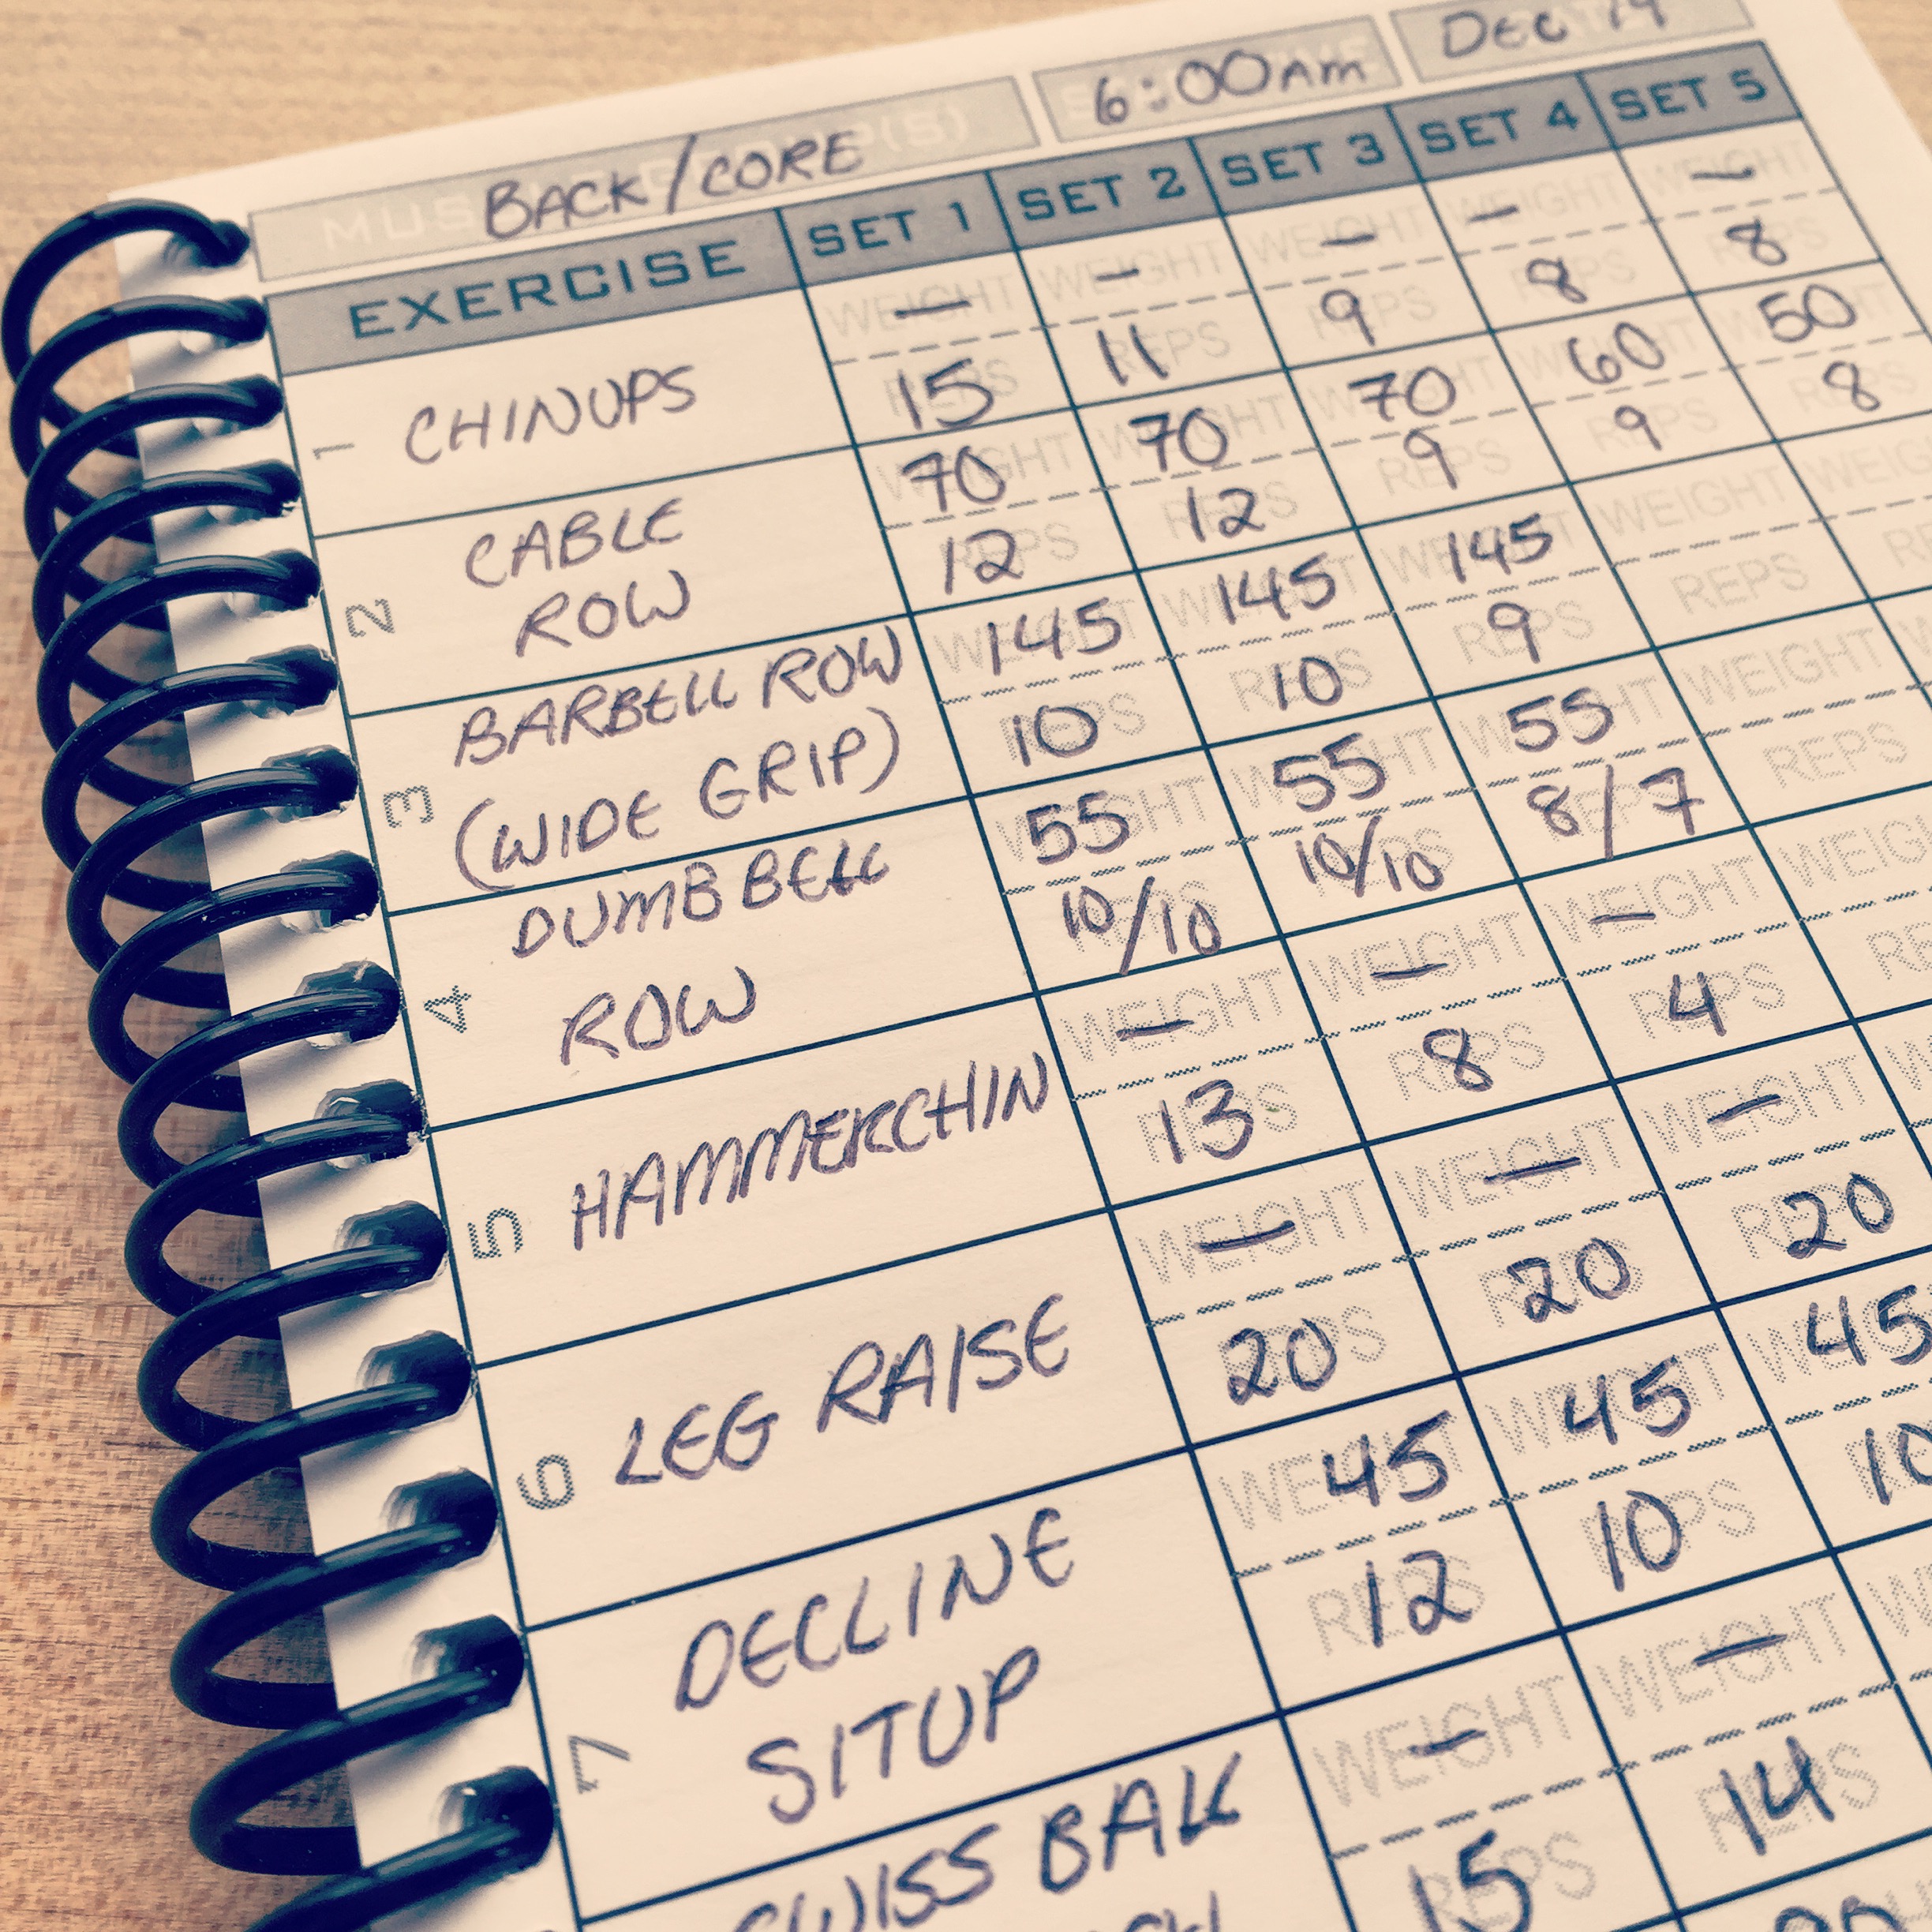 BACK/CORE 6:00AM DEC 19
EXERCISE SET 1 SET 2 SET 3 SET 4 SET 5
WEIGHT — WEIGHT — WEIGHT — WEIGHT — WEIGHT —
1 CHINUPS REPS 15 REPS 11 REPS 9 REPS 8 REPS 8
WEIGHT 70 WEIGHT 70 WEIGHT 70 WEIGHT 60 WEIGHT 50
2 CABLE
ROW REPS 12 REPS 12 REPS 9 REPS 9 REPS 8
WEIGHT 145 WEIGHT 145 WEIGHT 145 WEIGHT
3 BARBELL ROW
(WIDE GRIP) REPS 10 REPS 10 REPS 9 REPS
WEIGHT 55 WEIGHT 55 WEIGHT 55 WEIGHT
4 DUMBBELL
ROW REPS 10/10 REPS 10/10 REPS 8/7 REPS
WEIGHT — WEIGHT — WEIGHT — WEIGHT
5 HAMMERCHIN REPS 13 REPS 8 REPS 4
WEIGHT — WEIGHT — WEIGHT —
6 LEG RAISE REPS 20 REPS 20 REPS 20
WEIGHT 45 WEIGHT 45 45
7 DECLINE
SITUP REPS 12 REPS 10 10
WEIGHT — WEIGHT —
SWISS BALL REPS 15 REPS 14